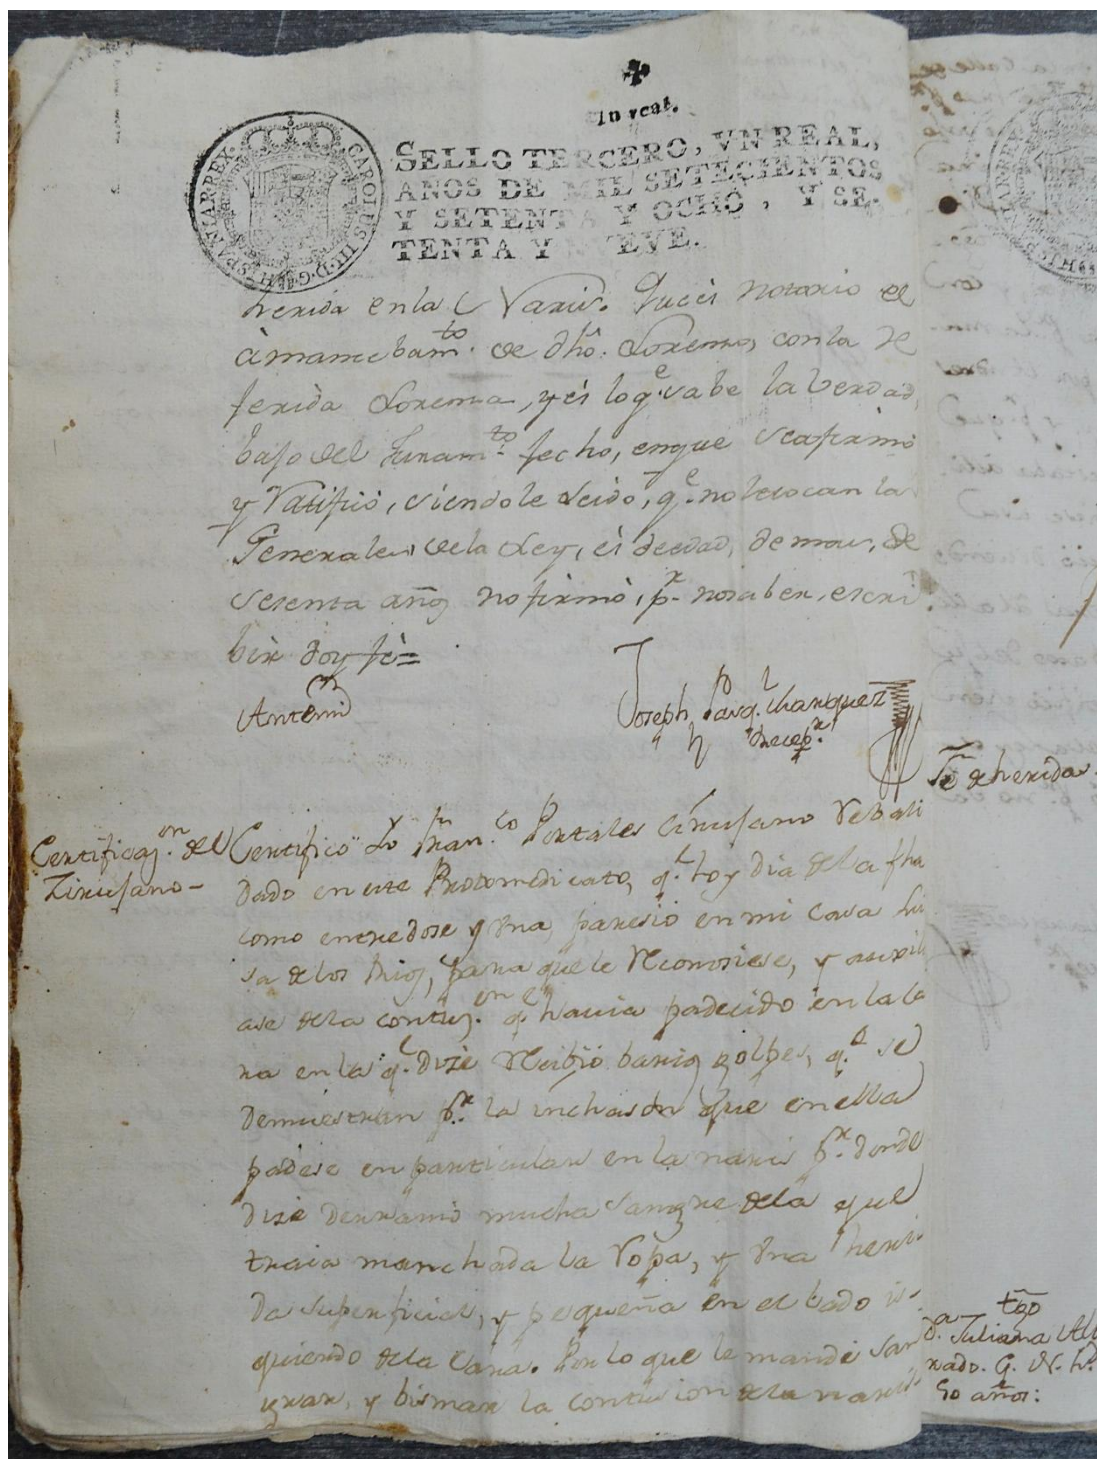 Un real.
SELLO TERCERO, VN REAL,
AÑOS DE MIL SETECIENTOS
Y SETENTA Y OCHO, Y SE-
TENTA Y EVE.
CAROLUS III. D. G. HISPANIAR. REX
herida en la Nariz. Que es notorio el
àmancebam.to de dho. Lorenzo, con la re
ferida Lorenza, y es lo q.e sabe la verdad,
bajo del Juram.to fecho, en que se afirmò
y Ratificò, siendole Leido, q.e no le tocan la
Generales de la Ley, es de edad, de mas, de
sesenta años no firmò, p.r no saber, escri
bir doy fè=
Antemi
Joseph Pasq.l Marquez
Recep.r
Certificaz.on del
Zirujano-
Certifico Yo Fran.co Portales Cirujano Rebali
dado en este Protomedicato, q.e hoy dia de la fha
como entre dose y una, paresio en mi casa Lui
sa de los Rios, para que le reconosiese, y auxili
ase de la contuz.on q.e havia padecido en la ca
ra en la q.e dize Recibiò barios golpes, q.e se
demuestran p.r la inchason que en ella
padese en particular en la naris p.r donde
dize derramò mucha sangre de la que
traia manchada la Ropa, y una heri-
da superficial, y pequeña en el lado is-
quierdo de la Cara. Por lo que le mandè san
grar, y bismar la contusion de la naris
Fè de herida
tgo
D.a Juliana Al
rado. G. N. h.
50 años: